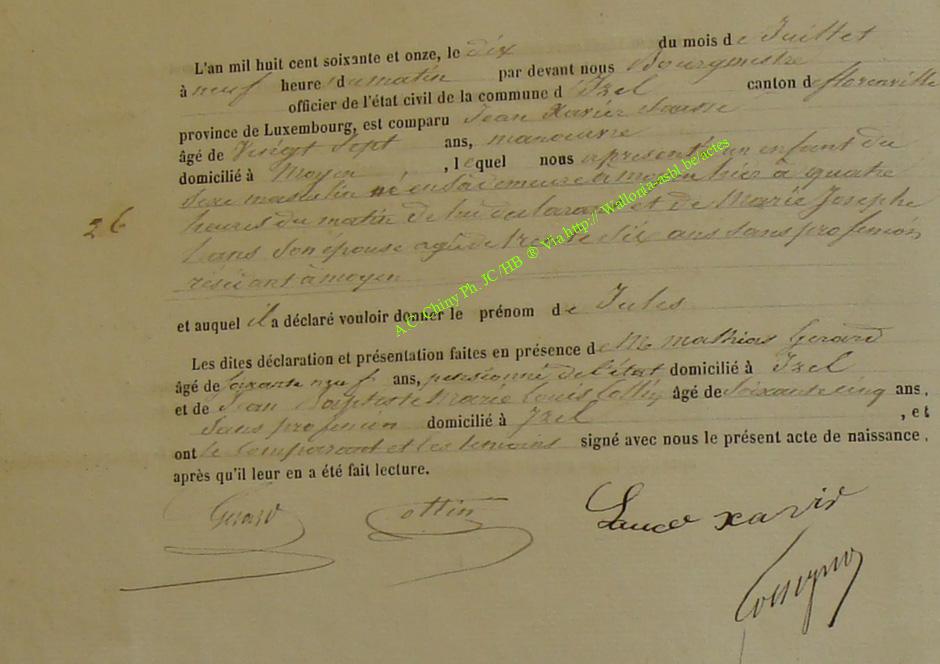 L'an mil huit cent soixante et onze, le dix du mois de Juillet
à neuf heure du matin par devant nous Bourgmestre
officier de l'état civil de la commune d Izel canton de florenville
province de Luxembourg, est comparu Jean Xavier
âgé de Vingt Sept ans, manoeuvre
domicilié à Moyen, lequel nous a présenté un enfant du
Sexe masculin né en sa demeure à moyen hier à quatre
26
heures du matin de lui déclarant et de Marie Josephe
son épouse agée de trente Six ans sans profession
résidant à moyen
et auquel il a déclaré vouloir donner le prénom de Jules
Les dites déclaration et présentation faites en présence de Mathias Gerard
âgé de soixante neuf ans, pensionné de l'état domicilié à Izel
et de Jean Baptiste Marie Louis âgé de Soixante cinq ans,
Sans profession domicilié à Izel, et
ont le Comparant et les témoins signé avec nous le présent acte de naissance,
après qu'il leur en a été fait lecture.
Gerard ottin xavir
A.C. Chiny Ph. JC/HB ® Via http:// Wallonia-asbl.be/actes